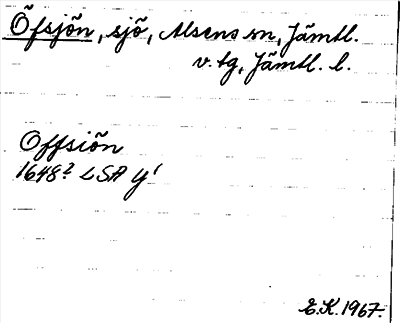 Öfsjön, sjö, Alsens sn, Jämtl.
v. tg, Jämtl. l.
Offsiön
1648? LSA y¹
E.K. 1967.